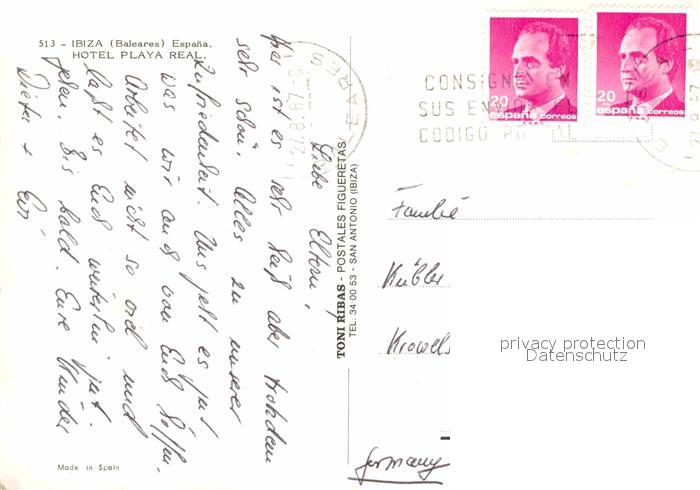 513 - IBIZA (Baleares) España.
HOTEL PLAYA REAL.
Liebe Eltern,
hier ist es sehr heiß aber trotzdem
sehr schön. Alles zu unserer
Zufriedenheit. Uns geht es gut
was wir auch von Euch hoffen.
Arbeitet nicht so und
laßt es Euch weiterhin gut
gehen. Bis bald. Eure Kinder
Dieter + Evi
Made in Spain
TONI RIBAS - POSTALES FIGUERETAS
TEL. 34 00 53 - SAN ANTONIO (IBIZA)
CONSIGNE EN
SUS
CODIGO POSTAL
20
españa correos
20
españa correos
Familie
Kübler
Krowels
privacy protection
Datenschutz
Germany